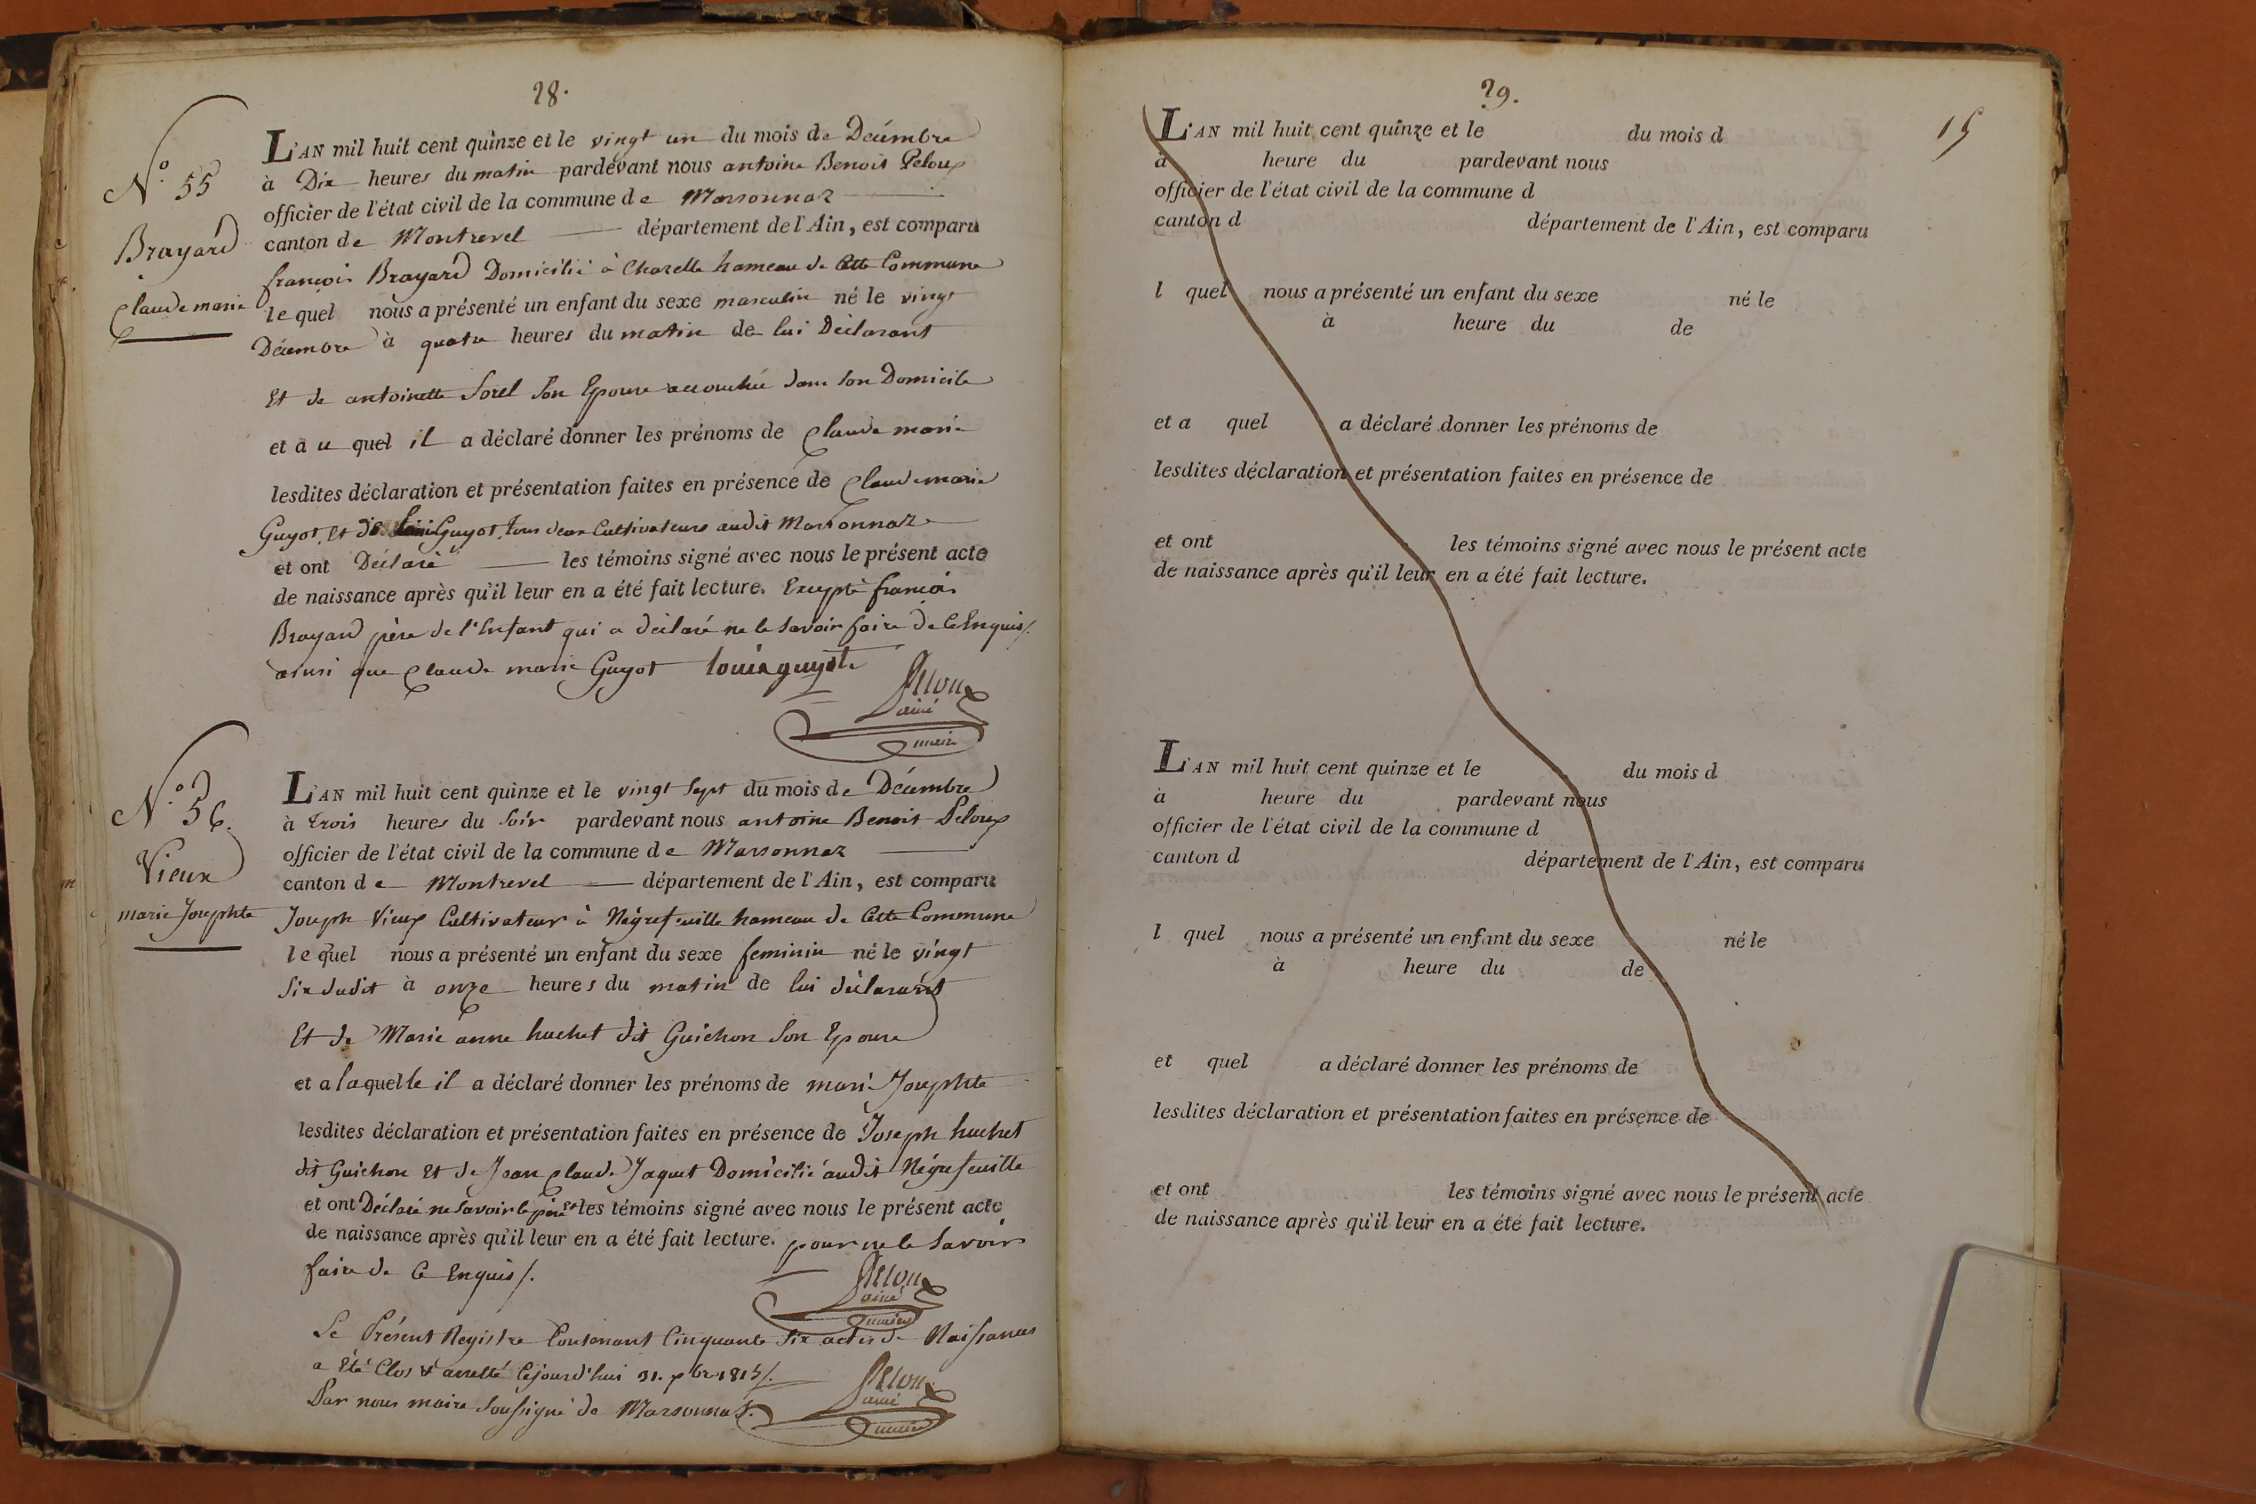 28.
N.° 55
Brayard
Claude marie
L'AN mil huit cent quinze et le vingt un du mois de Décembre
à Dix heures du matin pardevant nous antoine Benoit Peloux
officier de l'état civil de la commune de Marsonnaz
canton de Montrevel département de l'Ain, est comparu
françois Brayard Domicilié à Charelle hameau de Cette Commune
lequel nous a présenté un enfant du sexe masculin né le vingt
Décembre à quatre heures du matin de lui Déclarant
Et de antoinette Sorel Son Epouse accouchée dans Son Domicile
et au quel il a déclaré donner les prénoms de Claude marie
lesdites déclaration et présentation faites en présence de Claude marie
Guyot, Et de Guyot, tous deux Cultivateurs audit Marsonnaz
et ont Déclaré les témoins signé avec nous le présent acte
de naissance après qu'il leur en a été fait lecture. Excepté françois
Brayard père de l'Enfant qui a déclaré ne le Savoir faire de Ce Enquis/.
ainsi que Claude marie Guyot louis guyot
Peloux
ainé
maire
N.° 56.
Vieux
marie Josephte
L'AN mil huit cent quinze et le vingt Sept du mois de Décembre
à trois heures du Soir pardevant nous antoine Benoit Peloux
officier de l'état civil de la commune de Marsonnaz
canton de Montrevel département de l'Ain, est comparu
Joseph Vieux Cultivateur à Négrefeuille hameau de Cette Commune
lequel nous a présenté un enfant du sexe feminin né le vingt
Six dudit à onze heures du matin de lui déclarant
Et de Marie anne huchet dit Guichon Son Epouse
et a laquelle il a déclaré donner les prénoms de marie Josephte
lesdites déclaration et présentation faites en présence de Joseph huchet
dit Guichon Et de Jean Claude Jaquet Domicilié audit Négrefeuille
et ont Déclaré ne Savoir le père Et les témoins signé avec nous le présent acte
de naissance après qu'il leur en a été fait lecture. pour ne le Savoir
faire de Ce Enquis/.
Peloux
ainé
maire
Le Présent Registre Contenant Cinquante Six actes de Naissances
a Eté Clos & arretté Cejourd'hui 31. Xbre 1815/.
Par nous maire Soussigné de Marsonnaz.
Peloux
ainé
maire
29.
15
L'AN mil huit cent quinze et le du mois d
à heure du pardevant nous
officier de l'état civil de la commune d
canton d département de l'Ain, est comparu
l quel nous a présenté un enfant du sexe né le
à heure du de
et a quel a déclaré donner les prénoms de
lesdites déclaration et présentation faites en présence de
et ont les témoins signé avec nous le présent acte
de naissance après qu'il leur en a été fait lecture.
L'AN mil huit cent quinze et le du mois d
à heure du pardevant nous
officier de l'état civil de la commune d
canton d département de l'Ain, est comparu
l quel nous a présenté un enfant du sexe né le
à heure du de
et quel a déclaré donner les prénoms de
lesdites déclaration et présentation faites en présence de
et ont les témoins signé avec nous le présent acte
de naissance après qu'il leur en a été fait lecture.